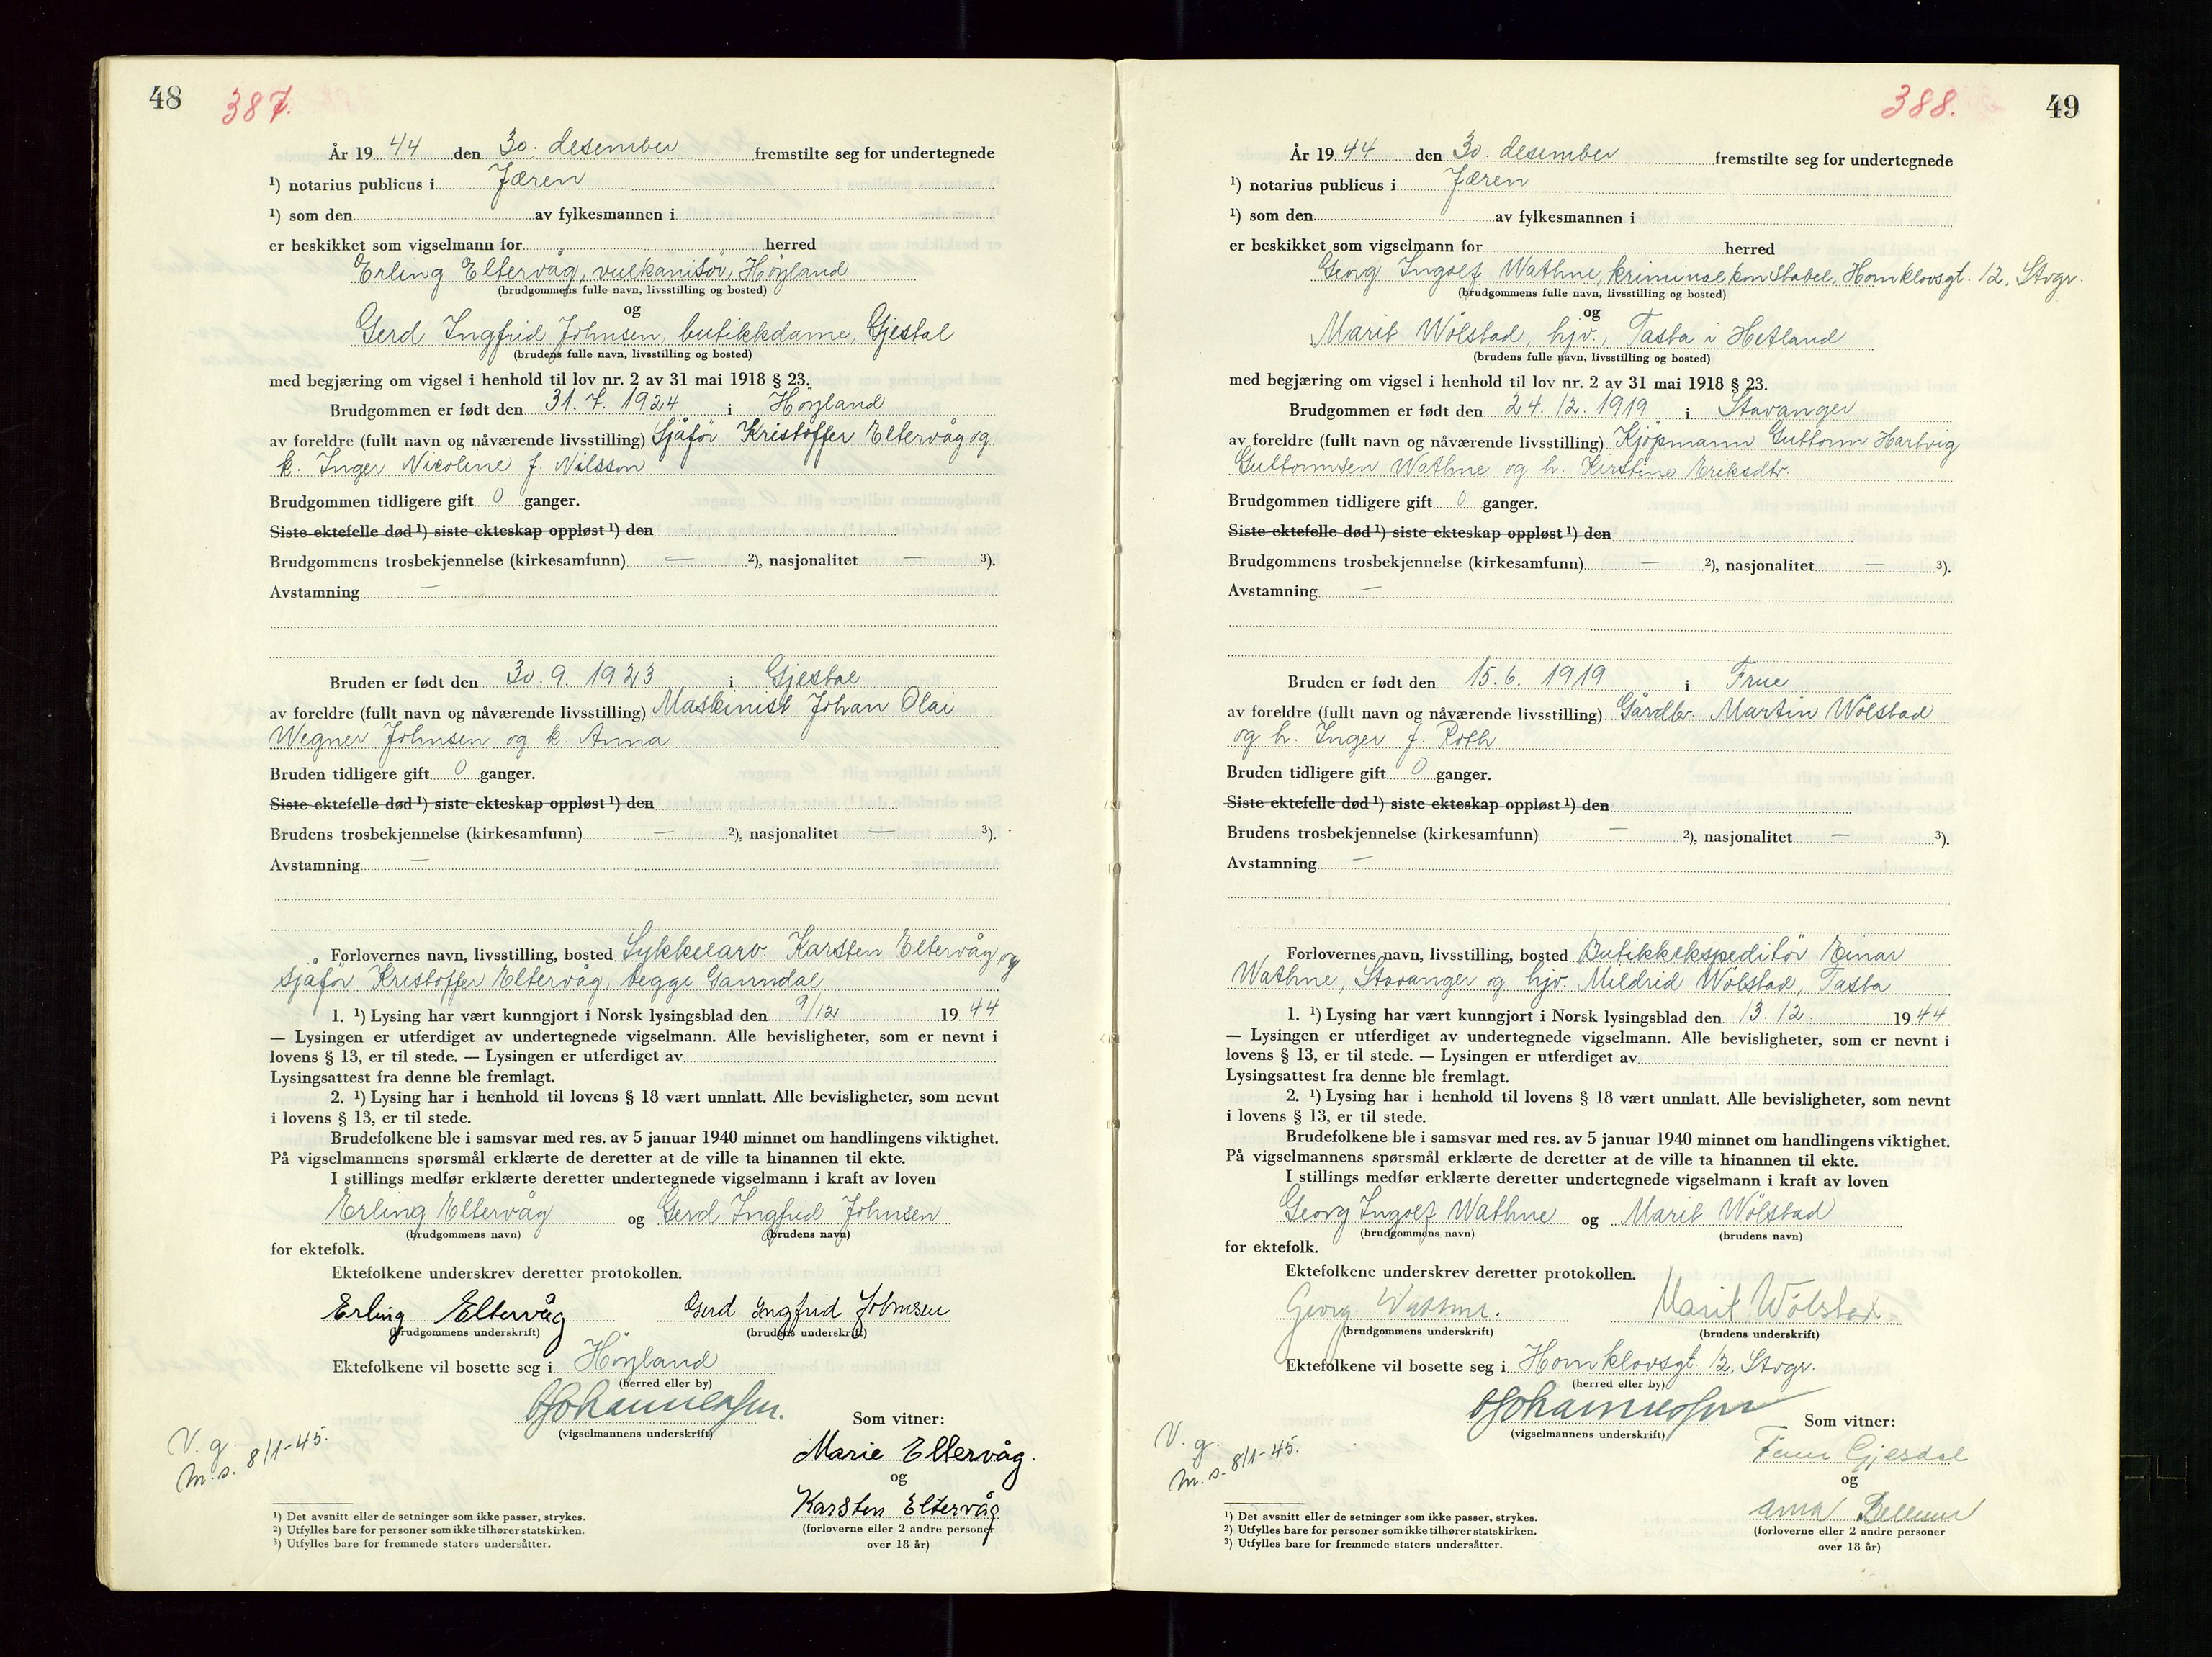 48 387.
År 19 44 den 30. desember fremstilte seg for undertegnede
¹) notarius publicus i Jæren
¹) som den av fylkesmannen i
er beskikket som vigselmann for herred
Erling Eltervåg, vulkanisör, Höyland
(brudgommens fulle navn, livsstilling og bosted)
og
Gerd Ingfrid Johnsen, butikkdame, Gjestal
(brudens fulle navn, livsstilling og bosted)
med begjæring om vigsel i henhold til lov nr. 2 av 31 mai 1918 § 23.
Brudgommen er født den 31. 7. 1924 i Höyland
av foreldre (fullt navn og nåværende livsstilling) Sjåför Kristoffer Eltervåg og
k. Inger Nicoline f. Nilsson
Brudgommen tidligere gift 0 ganger.
Siste ektefelle død ¹) siste ekteskap oppløst ¹) den
Brudgommens trosbekjennelse (kirkesamfunn) — ²), nasjonalitet — ³).
Avstamning —
Bruden er født den 30. 9. 1923 i Gjestal
av foreldre (fullt navn og nåværende livsstilling) Maskinist Johan Olai
Wegner Johnsen og k. Anna
Bruden tidligere gift 0 ganger.
Siste ektefelle død ¹) siste ekteskap oppløst ¹) den
Brudens trosbekjennelse (kirkesamfunn) — ²), nasjonalitet — ³).
Avstamning —
Forlovernes navn, livsstilling, bosted Sykkelarb. Karsten Eltervåg og
sjåför Kristoffer Eltervåg, begge Ganndal
1. ¹) Lysing har vært kunngjort i Norsk lysingsblad den 9/12 19 44
— Lysingen er utferdiget av undertegnede vigselmann. Alle bevisligheter, som er nevnt i
lovens § 13, er til stede. — Lysingen er utferdiget av
Lysingsattest fra denne ble fremlagt.
2. ¹) Lysing har i henhold til lovens § 18 vært unnlatt. Alle bevisligheter, som nevnt
i lovens § 13, er til stede.
Brudefolkene ble i samsvar med res. av 5 januar 1940 minnet om handlingens viktighet.
På vigselmannens spørsmål erklærte de deretter at de ville ta hinannen til ekte.
I stillings medfør erklærte deretter undertegnede vigselmann i kraft av loven
Erling Eltervåg og Gerd Ingfrid Johnsen
(brudgommens navn) (brudens navn)
for ektefolk.
Ektefolkene underskrev deretter protokollen.
Erling Eltervåg Gerd Ingfrid Johnsen
(brudgommens underskrift) (brudens underskrift)
Ektefolkene vil bosette seg i Höyland
(herred eller by)
Johannessen.
(vigselmannens underskrift)
Som vitner:
V. g.
m. s. 8/1-45.
Marie Eltervåg.
og
Karsten Eltervåg
(forloverne eller 2 andre personer
over 18 år)
¹) Det avsnitt eller de setninger som ikke passer, strykes.
²) Utfylles bare for personer som ikke tilhører statskirken.
³) Utfylles bare for fremmede staters undersåtter.
388. 49
År 19 44 den 30. desember fremstilte seg for undertegnede
¹) notarius publicus i Jæren
¹) som den av fylkesmannen i
er beskikket som vigselmann for herred
Georg Ingolf Wathne, kriminalkonstabel, Homklovsgt. 12, Stvgr.
(brudgommens fulle navn, livsstilling og bosted)
og
Marit Wölstad, hjv., Tasta i Hetland
(brudens fulle navn, livsstilling og bosted)
med begjæring om vigsel i henhold til lov nr. 2 av 31 mai 1918 § 23.
Brudgommen er født den 24. 12. 1919 i Stavanger
av foreldre (fullt navn og nåværende livsstilling) Kjöpmann Guttorm Hartvig
Guttormsen Wathne og h. Kirstine Eriksdtr.
Brudgommen tidligere gift 0 ganger.
Siste ektefelle død ¹) siste ekteskap oppløst ¹) den
Brudgommens trosbekjennelse (kirkesamfunn) — ²), nasjonalitet — ³).
Avstamning —
Bruden er født den 15. 6. 1919 i Frue
av foreldre (fullt navn og nåværende livsstilling) Gårdbr. Martin Wölstad
og h. Inger f. Roth
Bruden tidligere gift 0 ganger.
Siste ektefelle død ¹) siste ekteskap oppløst ¹) den
Brudens trosbekjennelse (kirkesamfunn) — ²), nasjonalitet — ³).
Avstamning —
Forlovernes navn, livsstilling, bosted Butikkekspeditör Einar
Wathne, Stavanger og hjv. Mildrid Wölstad, Tasta
1. ¹) Lysing har vært kunngjort i Norsk lysingsblad den 13. 12. 19 44
— Lysingen er utferdiget av undertegnede vigselmann. Alle bevisligheter, som er nevnt i
lovens § 13, er til stede. — Lysingen er utferdiget av
Lysingsattest fra denne ble fremlagt.
2. ¹) Lysing har i henhold til lovens § 18 vært unnlatt. Alle bevisligheter, som nevnt
i lovens § 13, er til stede.
Brudefolkene ble i samsvar med res. av 5 januar 1940 minnet om handlingens viktighet.
På vigselmannens spørsmål erklærte de deretter at de ville ta hinannen til ekte.
I stillings medfør erklærte deretter undertegnede vigselmann i kraft av loven
Georg Ingolf Wathne og Marit Wölstad
(brudgommens navn) (brudens navn)
for ektefolk.
Ektefolkene underskrev deretter protokollen.
Georg Wathne. Marit Wölstad.
(brudgommens underskrift) (brudens underskrift)
Ektefolkene vil bosette seg i Homklovsgt. 12, Stvgr.
(herred eller by)
Johannessen
(vigselmannens underskrift)
Som vitner:
V. g.
m. s. 8/1-45.
Gjesdal
og
Anna
(forloverne eller 2 andre personer
over 18 år)
¹) Det avsnitt eller de setninger som ikke passer, strykes.
²) Utfylles bare for personer som ikke tilhører statskirken.
³) Utfylles bare for fremmede staters undersåtter.